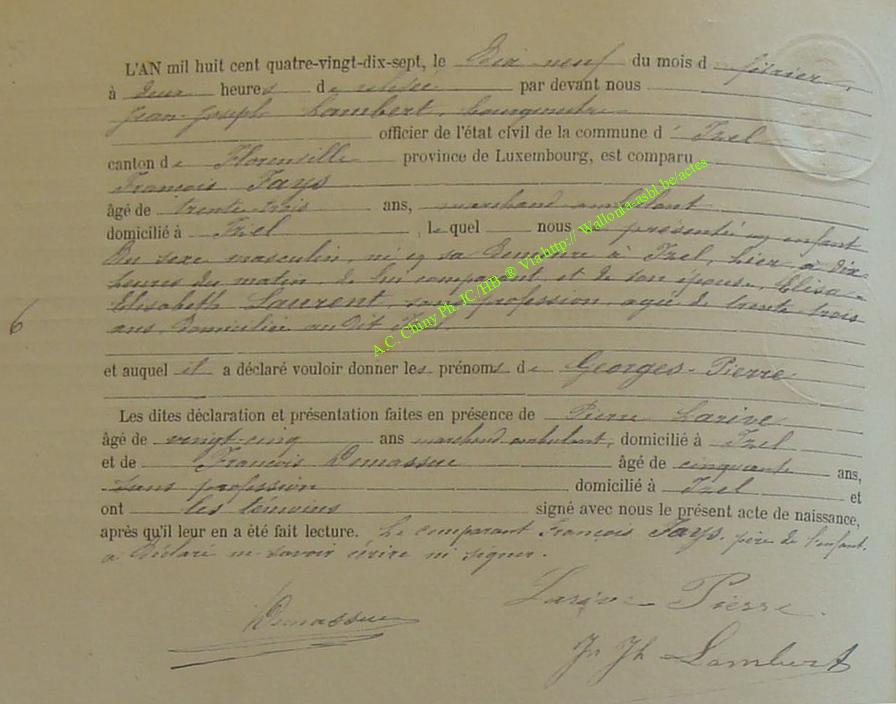 L'AN mil huit cent quatre-vingt-dix-sept, le Dix neuf du mois d février,
à deux heures de relevée par devant nous
Jean-Joseph Lambert, bourgmestre
officier de l'état civil de la commune d' Izel
canton de Florenville province de Luxembourg, est comparu
François Fays
âgé de trente-trois ans, marchand ambulant
domicilié à Izel, lequel nous présenté un enfant
Du sexe masculin, né en sa demeure à Izel, hier à dix
heures du matin, de lui comparant et de son épouse, Elisa-
Elisabeth Laurent, sans profession, agée de trente trois
ans, domiciliée au dit Izel
6
et auquel il a déclaré vouloir donner les prénoms de Georges-Pierre
Les dites déclaration et présentation faites en présence de Pierre Larive
âgé de vingt-cinq ans marchand ambulant, domicilié à Izel
et de François Demassue âgé de cinquante ans,
sans profession domicilié à Izel et
ont les témoins signé avec nous le présent acte de naissance,
après qu'il leur en a été fait lecture. Le comparant François Fays, père de l'enfant.
a déclaré ne savoir écrire ni signer.
Larive Pierre
Demassue
Jn Jh Lambert
A.C. Chiny Ph. JC/HB ® Via http:// Wallonia-asbl.be/actes